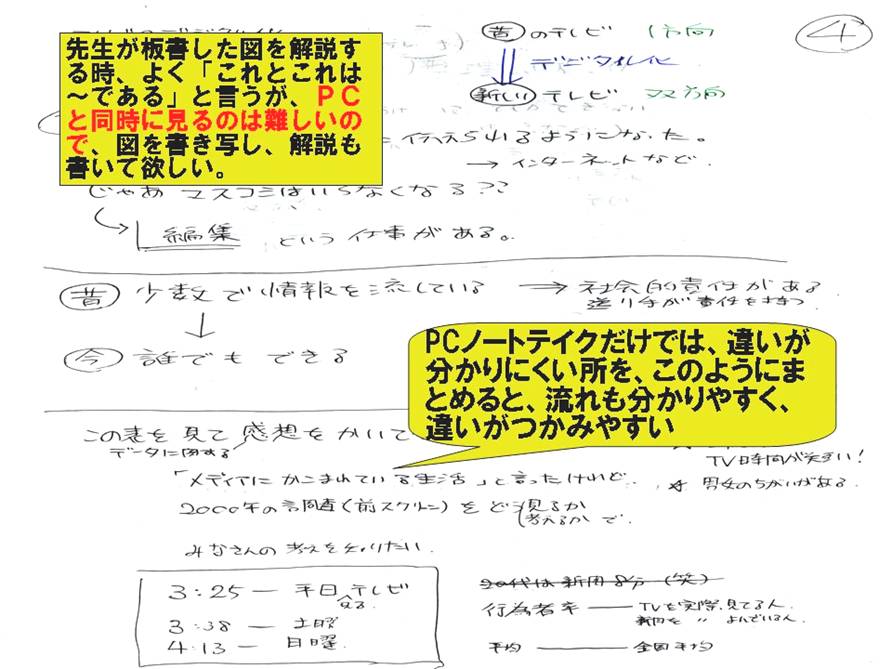 昔のテレビ 1方向
④
デジタル化
新しいテレビ 双方向
先生が板書した図を解説す
る時、よく「これとこれは
～である」と言うが、ＰＣ
と同時に見るのは難しいの
で、図を書き写し、解説も
書いて欲しい。
伝えられるようになった。
→ インターネットなど.
じゃあ マスコミはいらなくなる??
編集 という仕事がある。
昔 少数で情報を流している ⇒ 社会的責任がある
送り手が責任を持つ
↓
今 誰でもできる
PCノートテイクだけでは、違いが
分かりにくい所を、このようにま
とめると、流れも分かりやすく、
違いがつかみやすい
この表を見て感想をかいて
データに関する
TV時間が
「メディアにかこまれている生活」と言ったけれど.
☆ 男女のちがいがある.
2000年の調査(前スクリーン)をどう見るか
(考えるか で.
みなさんの考えを知りたい.
3:25 ― 平日 テレビ
見る
3:38 ― 土曜
4:13 ― 日曜.
20代は新聞8分(笑)
行為者率 ― TVを実際、見てる人.
新聞を 〃 よんでいる人.
平均 ― 全国平均